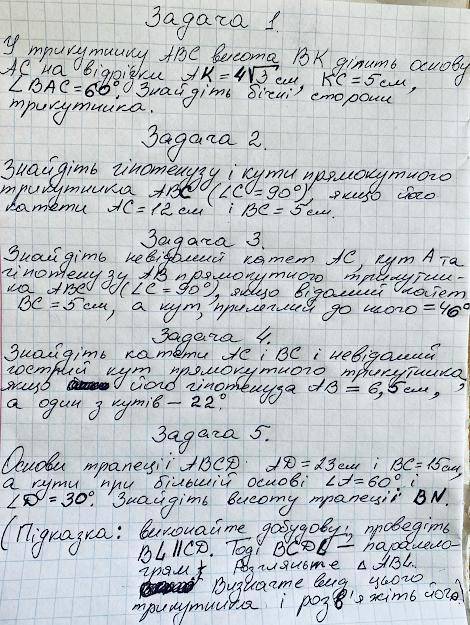 Задача 1.
У трикутнику ABC висота BK ділить основу
AC на відрізки AK = 4√3 см, KC = 5 см,
∠BAC = 60°. Знайдіть бічні сторони
трикутника.
Задача 2.
Знайдіть гіпотенузу і кути прямокутного
трикутника ABC (∠C = 90°), якщо його
катети AC = 12 см і BC = 5 см.
Задача 3.
Знайдіть невідомий катет AC, кут A та
гіпотенузу AB прямокутного трикутни-
ка ABC (∠C = 90°), якщо відомий катет
BC = 5 см, а кут, прилеглий до нього = 46°
Задача 4.
Знайдіть катети AC і BC і невідомий
гострий кут прямокутного трикутника,
якщо його гіпотенуза AB = 6,5 см,
а один з кутів – 22°.
Задача 5.
Основи трапеції ABCD: AD = 23 см і BC = 15 см,
а кути при більшій основі ∠A = 60° і
∠D = 30°. Знайдіть висоту трапеції BN.
(Підказка: виконайте добудову: проведіть
BL || CD. Тоді BCDL – парало-
грам. Розгляньте △ ABL.
Визначте вид цього
трикутника і розв'яжіть його)